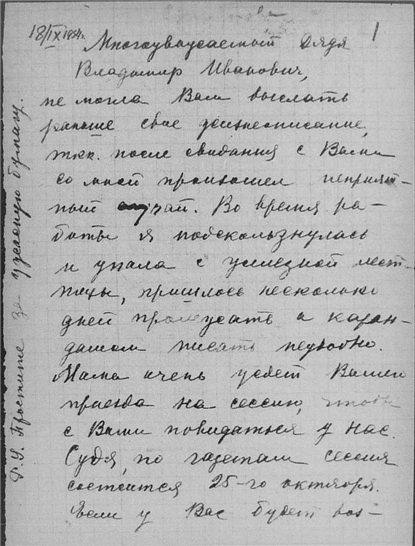 18/IX 1954г.
1
Многоуважаемый Дядя
Владимир Иванович,
не могла Вам выслать
раньше свое жизнеописание,
т.к. после свидания с Вами
со мной произошел неприят-
ный случай. Во время ра-
боты я подскользнулась
и упала с железной лест-
ницы, пришлось несколько
дней а каран-
дашом писать неудобно.
Мама очень ждет Вашего
приезда на сессию, чтобы
с Вами повидаться у нас.
Судя, по газетам сессия
состоится 25-го октября.
Если у Вас будет воз-
Р.У. Простите за бумагу.